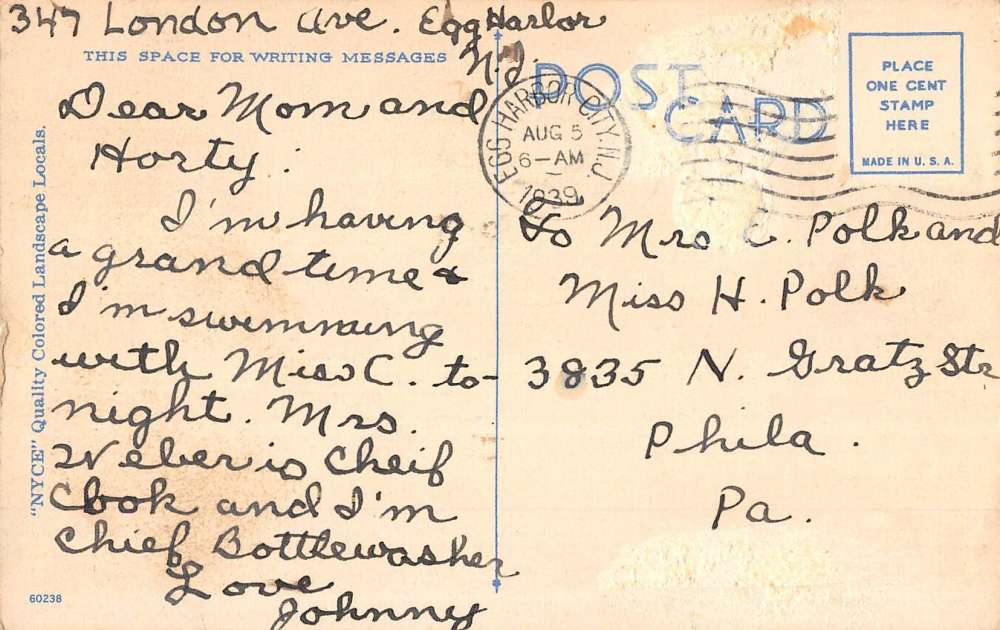 347 London Ave. Egg Harbor
N.J.
THIS SPACE FOR WRITING MESSAGES
Dear Mom and
Horty:
I'm having
a grand time &
I'm swimming
with Miss C. to-
night. Mrs.
Weber is Cheif
Cook and I'm
Chief Bottlewasher
Love
Johnny
"NYCE" Quality Colored Landscape Locals.
60238
POST
CARD
EGG HARBOR CITY, N.J.
AUG 5
6-AM
1939
PLACE
ONE CENT
STAMP
HERE
MADE IN U.S.A.
To Mrs C. Polk and
Miss H. Polk
3835 N. Gratz Str
Phila.
Pa.